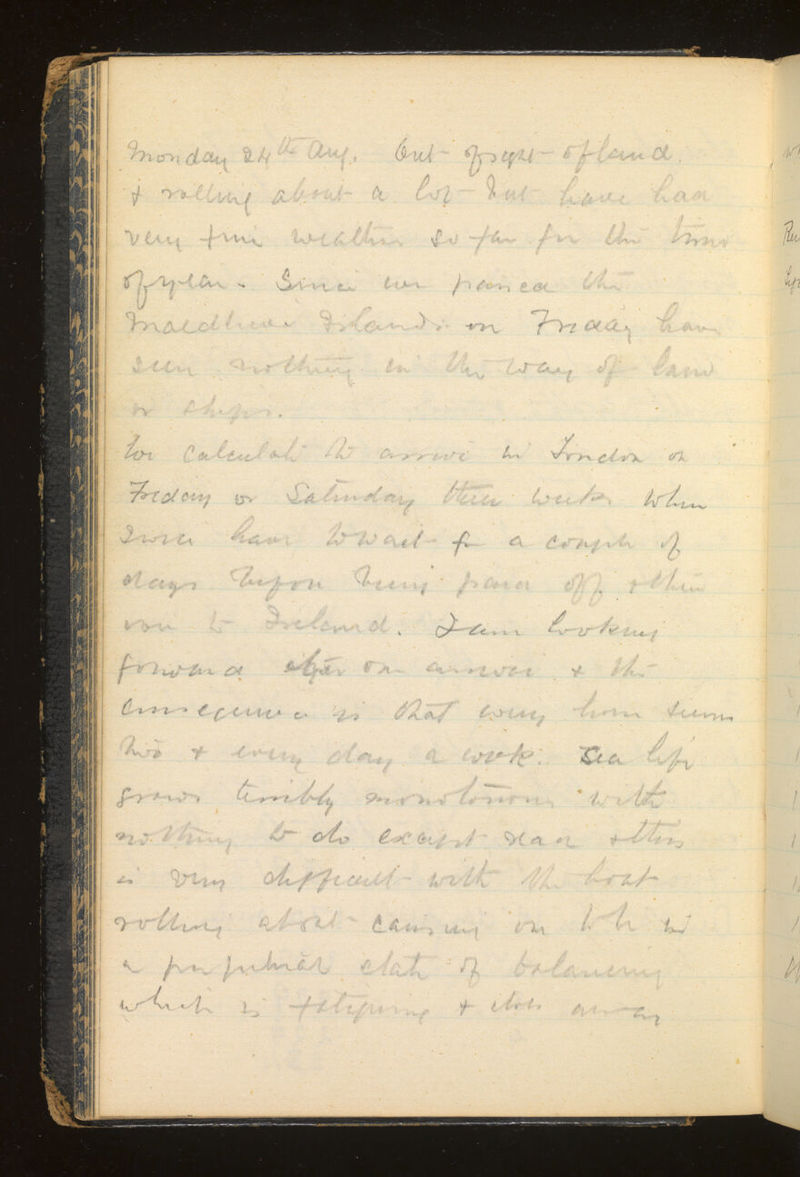 Monday 24th Aug. Out of sight of land
& rolling about a lot but have had
very fine weather so far for the time
of year. Since we passed the
Maldive Islands on Friday have
seen nothing in the way of land
or ships.
We calculate to arrive in London on
Friday or Saturday three weeks when
I will have to wait for a couple of
days before being paid off & then
run to Ireland. I am looking
forward to our arrival & the
consequence is that every hour seems
two & every day a week. Sea life
grows terribly monotonous with
nothing to do except read & this
is very difficult with the boat
rolling about causing one to be in
a perpetual state of balancing
which is fatiguing & takes away